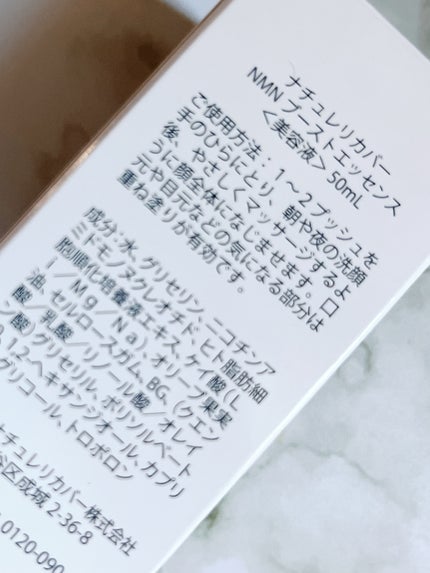 ナチュレリカバー
NMN ブーストエッセンス
<美容液> 50mL
ご使用方法：1～2プッシュを
手のひらにとり、朝や夜の洗顔
後、やさしくマッサージするよ
うに顔全体になじませます。口
元や目元などの気になる部分は
重ね塗りが有効です。
成分:水、グリセリン、ニコチンア
ミドモノヌクレオチド、ヒト脂肪細
胞順化培養液エキス、ケイ酸（L
i／Mg／Na）、オリーブ果実
油、セルロースガム、BG、（クエン
酸／乳酸／リノール酸／オレイ
ン酸）グリセリル、ポリソルベート
1,2ヘキサンジオール、カプリ
グリコール、トロポロン
ナチュレリカバー株式会社
谷区成城 2-36-8
0120-090